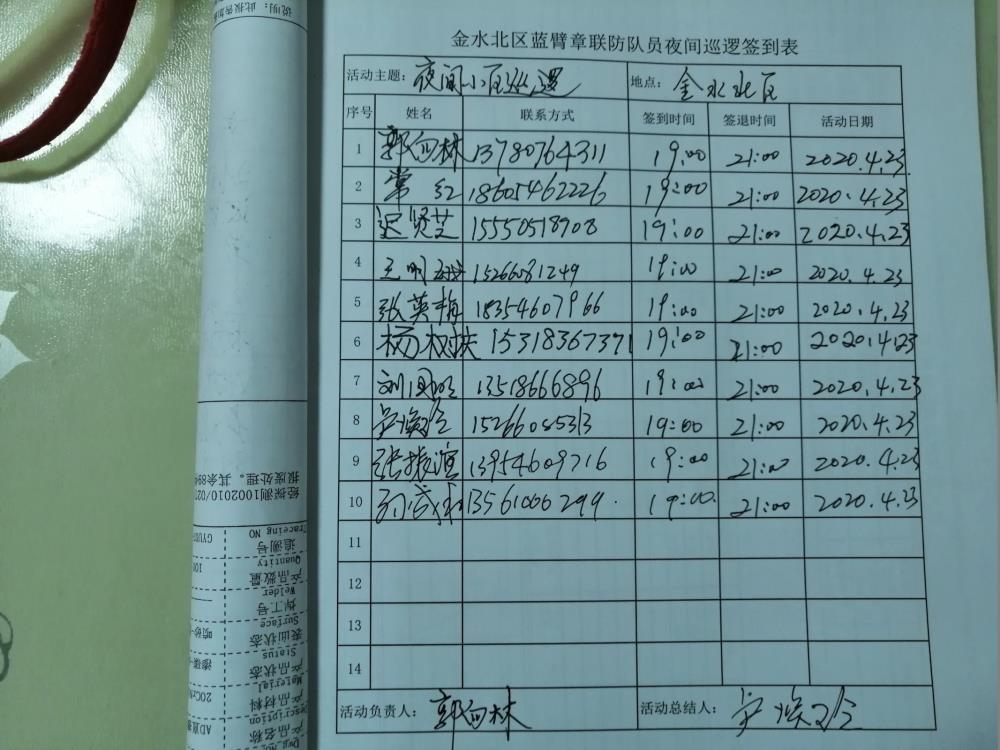 金水北区蓝臂章联防队员夜间巡逻签到表
活动主题： 夜间小区巡逻 地点： 金水北区
序号 姓名 联系方式 签到时间 签退时间 活动日期
1 郭向林 13780764311 19:00 21:00 2020.4.23
2 常红 18605462226 19:00 21:00 2020.4.23
3 迟贤芝 15550518908 19:00 21:00 2020.4.23
4 王明 15266081249 19:00 21:00 2020.4.23
5 张英梅 18354607966 19:00 21:00 2020.4.23
6 杨 15318367371 19:00 21:00 2020.4.23
7 刘国明 13518666896 19:00 21:00 2020.4.23
8 15266085313 19:00 21:00 2020.4.23
9 张振 13954609716 19:00 21:00 2020.4.23
10 13561006299. 19:00. 21:00 2020.4.23
11
12
13
14
活动负责人： 郭向林 活动总结人：
说明：此报告
经探测1002010/02
报废处理。其余89
Traceing NO
追溯号 GYU
Quantity
产品数量 100
Welder
焊工号
Surface
表面状态 喷砂
Status
产品状态
Material
产品材料 20Cr
Description
产品名称 AD